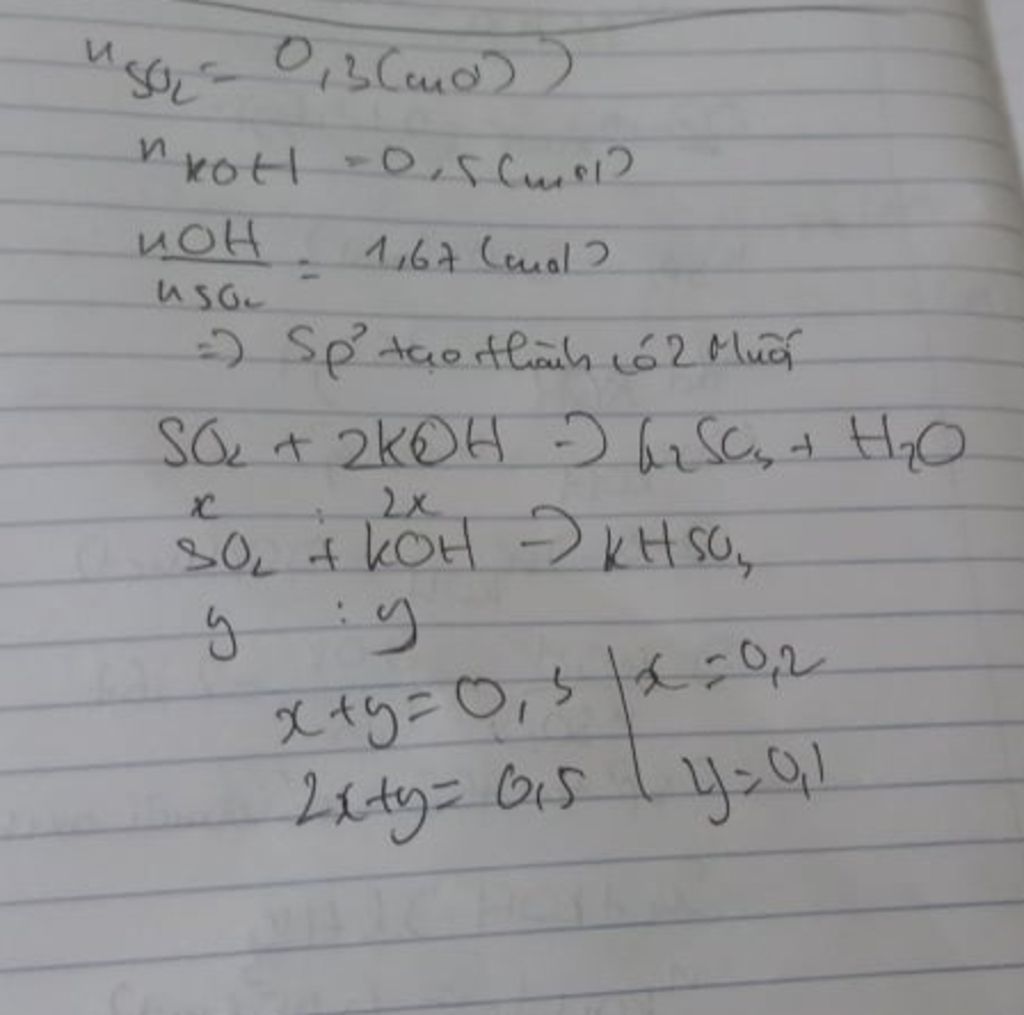 n SO₂ = 0,3 (mol)
n KOH = 0,5 (mol)
nOH / nSO₂ = 1,67 (mol)
=> Sp² tạo thành có 2 Muối
SO₂ + 2KOH -> K₂SO₃ + H₂O
x : 2x
SO₂ + KOH -> KHSO₃
y : y
x + y = 0,3 | x = 0,2
2x + y = 0,5 | y = 0,1